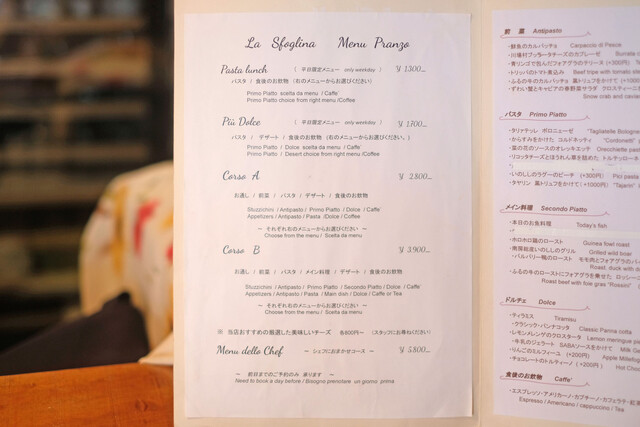 La Sfoglina Menu Pranzo
Pasta lunch ( 平日限定メニュー only weekday ) ¥ 1300_
パスタ / 食後のお飲物 (右のメニューからお選びください)
Primo Piatto scelta da menu / Caffe'
Primo Piatto choose from right menu /Coffee
Più Dolce ( 平日限定メニュー only weekday ) ¥ 1700_
パスタ / デザート / 食後のお飲物 (右のメニューからお選びください。)
Primo Piatto / Dolce scelta da menu / Caffe'
Primo Piatto / Desert choose from right menu /Coffee
Corso A ¥ 2800_
お通し / 前菜 / パスタ / デザート / 食後のお飲物
Stuzzichini / Antipasto / Primo Piatto / Dolce / Caffe'
Appetizers / Antipasto / Pasta / Dolce / Coffee
~ それぞれのメニューからお選びください ~
Choose from the menu / Scelta da menu
Corso B ¥ 3900_
お通し / 前菜 / パスタ / メイン料理 / デザート / 食後のお飲物
Stuzzichini / Antipasto / Primo Piatto / Secondo Piatto / Dolce / Caffe'
Appetizers / Antipasto / Pasta / Main dish / Dolce / Caffe or Tea
~ それぞれのメニューからお選びください ~
Choose from the menu / Scelta da menu
※ 当店おすすめの厳選した美味しいチーズ 各800円~ (スタッフにお尋ねください)
Menu dello Chef ~ シェフにおまかせコース ~ ¥ 5800_
~ 前日までのご予約のみ 承ります ~
Need to book a day before / Bisogna prenotare un giorno prima
前 菜 Antipasto
・鮮魚のカルパッチョ Carpaccio di Pesce
・川場村ブッラータチーズのカプレーゼ Burrata
・青リンゴで包んだフォアグラのテリーヌ (+300円)
・トリッパのトマト煮込み Beef tripe with tomato
・ふるの牛のカルパッチョ 黒トリュフをかけて (+300円)
・ずわい蟹とキャビアの春野菜サラダ クロスティーニ
Snow crab and caviar
パスタ Primo Piatto
・タリアテッレ ボロニェーゼ "Tagliatelle Bolognese
・からすみをかけた コルドネッティ "Cordonetti"
・菜の花のソースのオレッキエッテ Orecchiette
・リコッタチーズとほうれん草を詰めた トルテッロー
・いのししのラグーのピーチ (+200円) Pici
・タヤリン 黒トリュフをかけて (+1200円) "Tajarin"
メイン料理 Secondo Piatto
・本日のお魚料理 Today's fish
・ホロホロ鶏のロースト Guinea fowl roast
Grilled wild boar
・バルバリー鴨のロースト モモ肉とフォアグラの
Roast, duck with
・ふるの牛のローストにフォアグラを乗せた ロッシーニ
Roast beef with foie gras "Rossini"
ドルチェ Dolce
・ティラミス Tiramisu
・クラシック・パンナコッタ Classic Panna cotta
・レモンメレンゲのクロスタータ Lemon meringue
・牛乳のジェラート SABAソースをかけて Milk
・りんごのミルフィーユ (+200円) Apple
・チョコレートのトルティーノ (+200円) Hot
食後のお飲物 Caffe'
・エスプレッソ・アメリカーノ・カプチーノ・カフェラテ・紅茶
Espresso / Americano / cappuccino / Tea